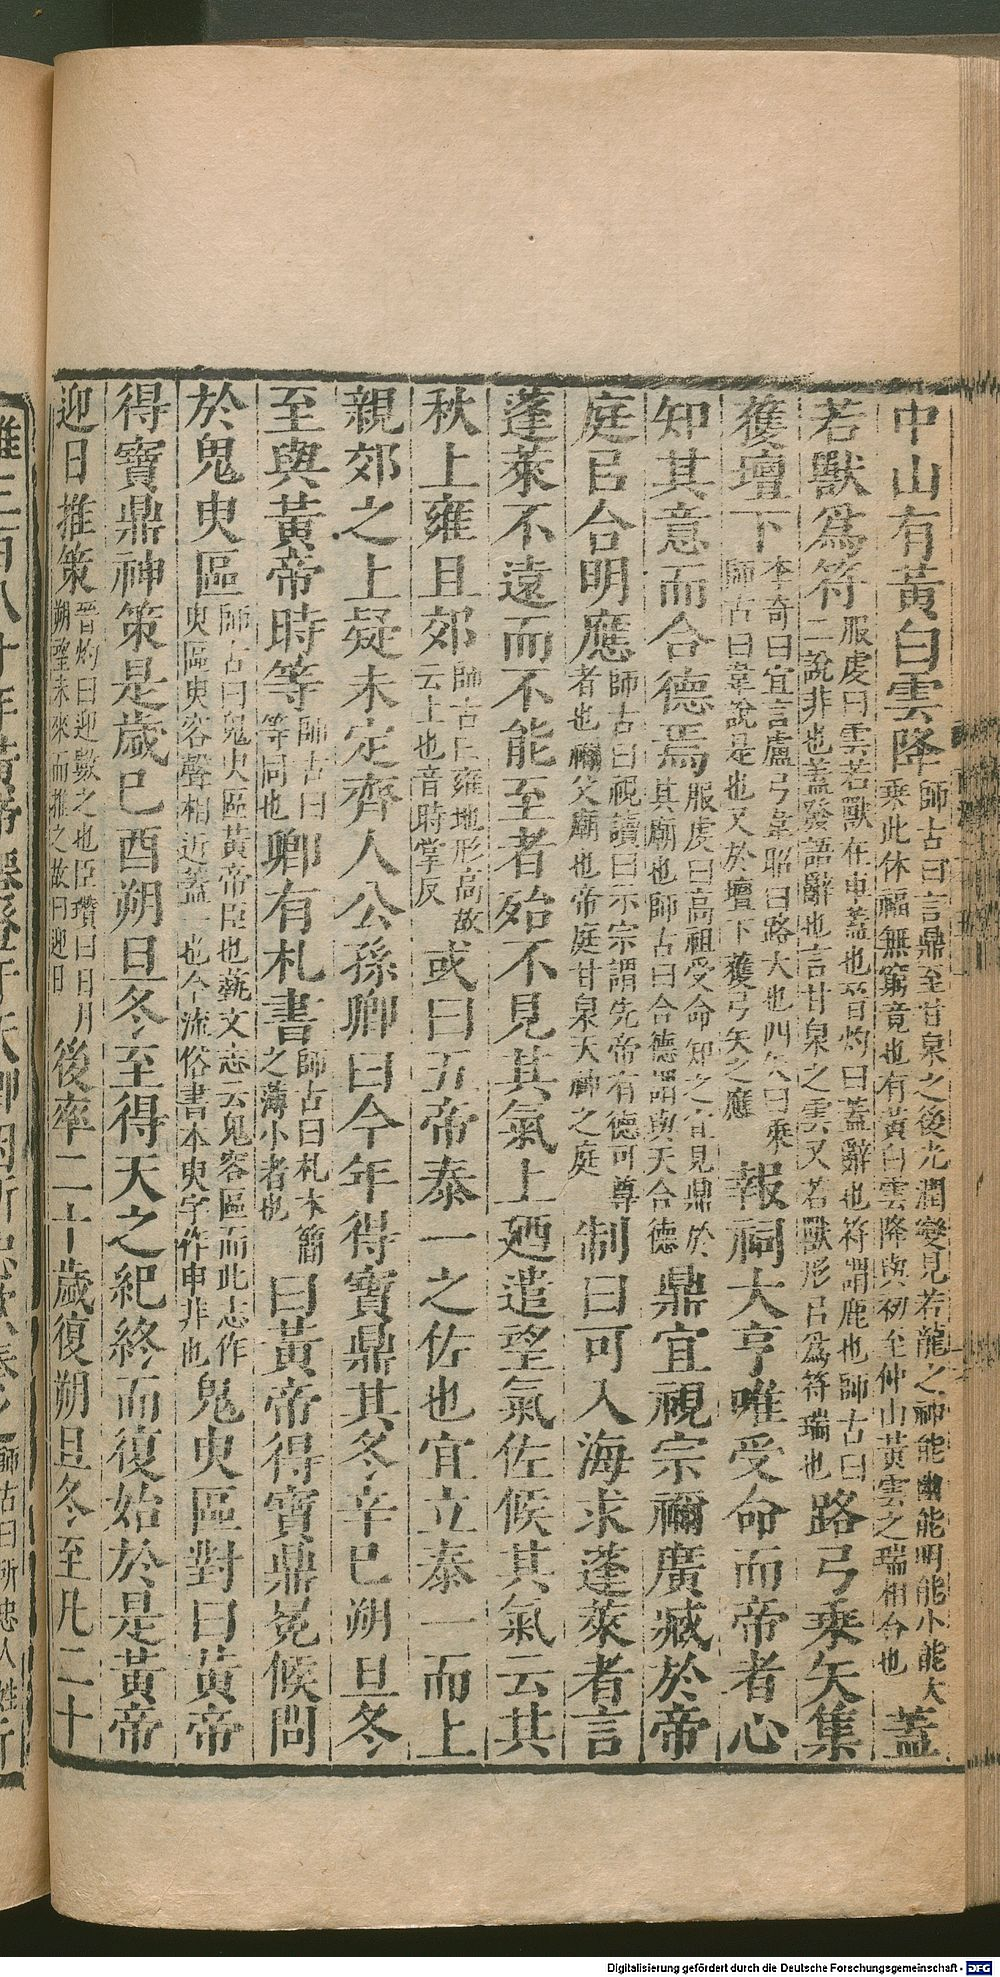 中山有黃白雲降師古曰言鼎至甘泉之後光潤變見若龍之神能幽能明能小能大乘此休福無窮竟也有黃白雲降與初至仲山黃雲之瑞相合也蓋
若獸爲符服虔曰雲若獸在車蓋也晉灼曰蓋辭也符謂鹿也師古曰二說非也蓋發語辭也言甘泉之雲又若獸形以爲符瑞也路弓乘矢集
獲壇下李奇曰宜言盧弓韋昭曰路大也四矢曰乘師古曰韋說是也又於壇下獲弓矢之應報祠大亨唯受命而帝者心
知其意而合德焉服虔曰高祖受命知之宜見鼎於其廟也師古曰合德謂與天合德鼎宜視宗禰廣臧於帝
庭㠯合明應師古曰視讀曰示宗謂先帝有德可尊者也禰父廟也帝庭甘泉天神之庭制曰可入海求蓬萊者言
蓬萊不遠而不能至者殆不見其氣上廼遣望氣佐候其氣云其
秋上雍且郊師古曰雍地形高故云上也音時掌反或曰五帝泰一之佐也宜立泰一而上
親郊之上疑未定齊人公孫卿曰今年得寶鼎其冬辛巳朔旦冬
至與黃帝時等師古曰等同也卿有札書師古曰札木簡之薄小者也曰黃帝得寶鼎冕候問
於鬼臾區師古曰鬼臾區黃帝臣也藝文志云鬼容區而此志作臾區臾容聲相近蓋一也今流俗書本臾字作申非也鬼臾區對曰黃帝
得寶鼎神策是歲己酉朔旦冬至得天之紀終而復始於是黃帝
迎日推策晉灼曰迎數之也臣瓚曰日月朔望未來而推之故曰迎日後率二十歲復朔旦冬至凡二十
推三百八十年黃帝
師古曰所忠人姓
Digitalisierung gefördert durch die Deutsche Forschungsgemeinschaft - DFG